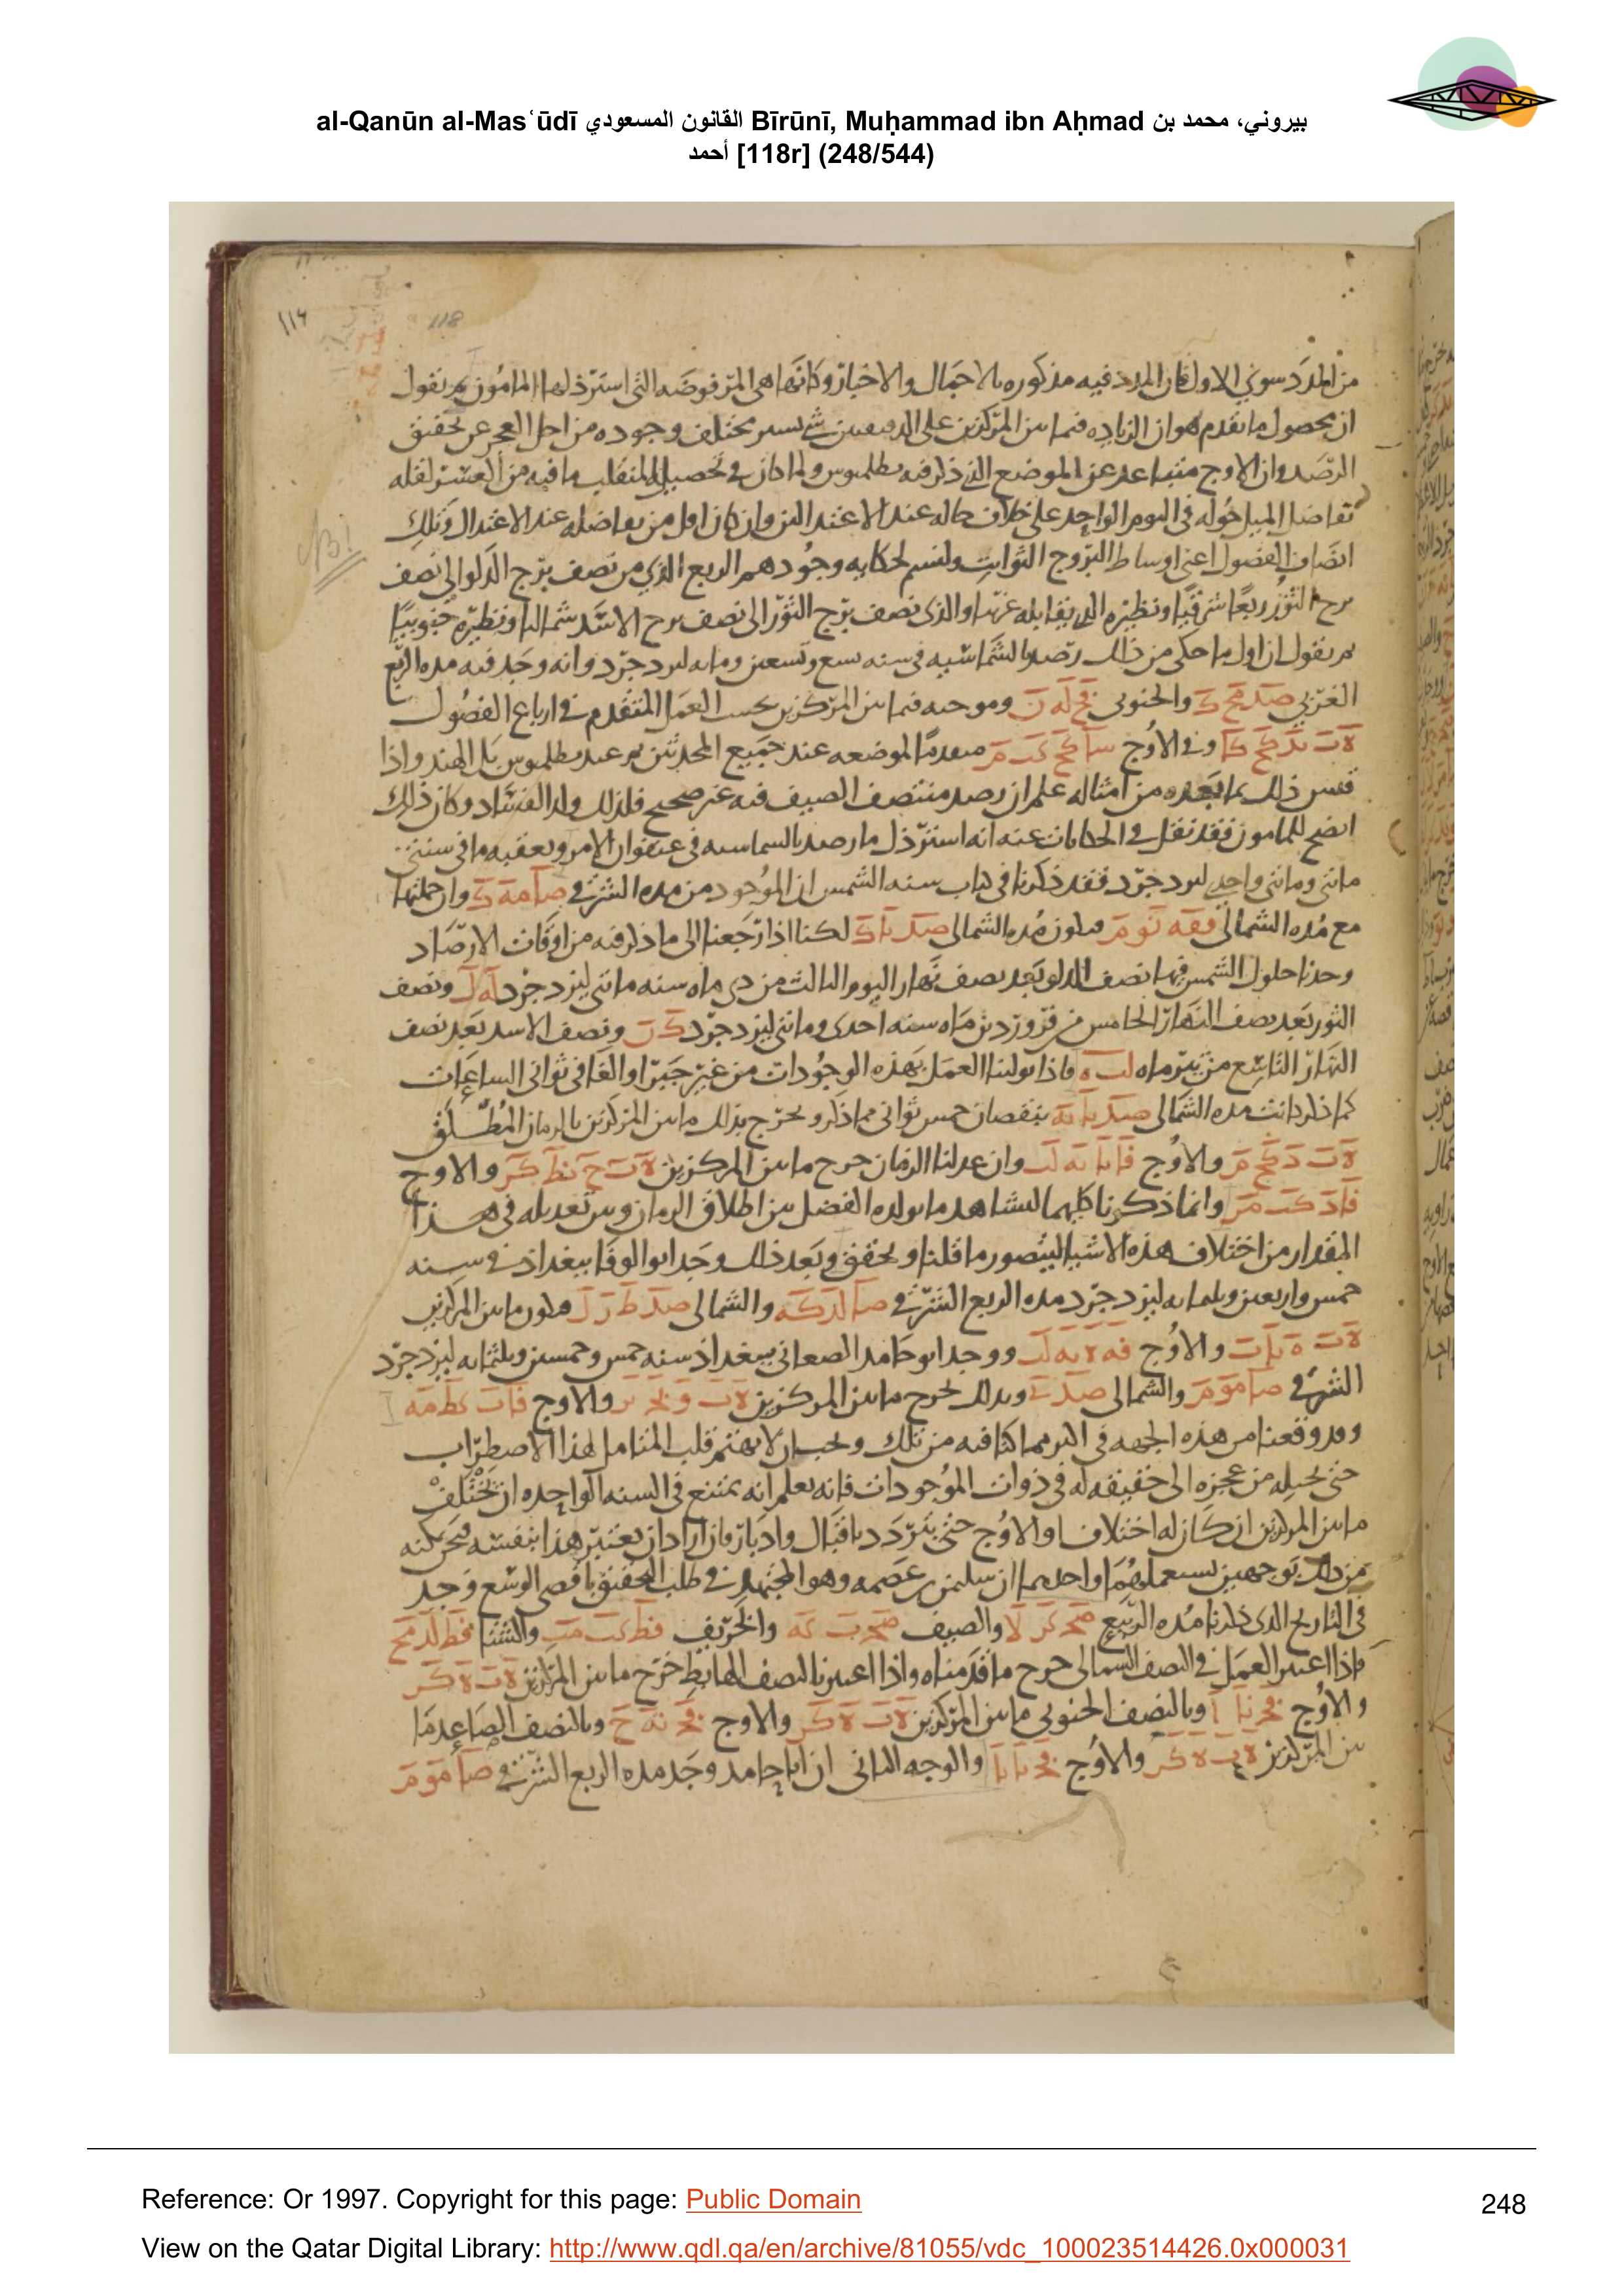 al-Qanūn al-Masʿūdī القانون المسعودي Bīrūnī, Muḥammad ibn Aḥmad بيروني، محمد بن
أحمد [118r] (248/544)
١١٤
118
من المدد سوى الاول فان المدد فيه مذكوره بالاجمال والاخبار وكانها هي المرفوضه التي استرذلها المامون ثم نقول
ان محصول ما تقدم هو ان الزياده فيما بين المركزين على الدقيقتين شي يسير مختلف وجوده من اجل العجز عن تحقيق
الرصد وان الاوج متباعد عن الموضع الذي ذكر فيه بطلميوس ولما كان في تحصيل المنقلب ما فيه من العسر لقله
تفاضل الميل حوله في اليوم الواحد على خلاف حاله عند الاعتدالين وان كان اقل من تفاضله عند الاعتدال وتلك
انصاف الفصول اعني اوساط البروج الثوابت ولنسم لحكايه وجودهم الربع الذي من نصف برج الدلو الى نصف
برج الثور ربعا شرقيا ونظيره الذي يقابله غربيا والذي نصف برج الثور الى نصف برج الاسد شماليا ونظيره جنوبيا
ثم نقول ان اول ما حكى من ذلك رصد بالشماسيه في سنه سبع وتسعين ومايه ليزدجرد وانه وجد فيه مده الربع
الغربي والجنوبي وموجبه فيما بين المركزين بحسب العمل المتقدم في ارباع الفصول
وفي الاوج متقدما لموضعه عند جميع المحدثين ثم عند بطلميوس بل الهند واذا
قيس ذلك بما بعده من امثاله علم ان رصد منتصف الصيف فيه غير صحيح فلذلك ولد الفساد وكان ذلك
اتضح للمامون فقد نقل في الحكايات عنه انه استرذل ما رصد بالشماسيه في عنفوان الامر وبعقبه ما في سنتي
مائتي ومائتي واحدي ليزدجرد فقد ذكرنا في كتاب سنه الشمس ان الموجود من مده الشرقي وان جملتها
مع مده الشمالي فيكون مده الشمالي لكنا اذا رجعنا الى ما ذكر فيه من اوقات الارصاد
وجدنا حلول الشمس فيها نصف الدلو بعد نصف نهار اليوم الثالث من دي ماه سنه مائتي ليزدجرد ونصف
الثور بعد نصف النهار الخامس من فروردين ماه سنه احدى ومائتي ليزدجرد ونصف الاسد بعد نصف
النهار التاسع من تير ماه فاذا تولينا العمل بهذه الموجودات من غير جبر او الغا في ثواني الساعات
كما ذكر كانت مده الشمالي بنقصان خمس ثواني مما ذكر ويخرج بذلك ما بين المركزين بالزمان المطلق
والاوج وان عدلنا الزمان خرج ما بين المركزين والاوج
وانما ذكرنا كليهما ليشاهد ما يولده الفضل بين اطلاق الزمان وبين تعديله في هذا
المقدار من اختلاف هذه الاشيا ليتصور ما قلنا ويحقق وبعد ذلك وجد ابو الوفا ببغداد في سنه
خمس واربعين وثلثمايه ليزدجرد مده الربع الشرقي والشمالي فيكون ما بين المركزين
والاوج ووجد ابو حامد الصغاني ببغداد سنه خمس وخمسين وثلثمايه ليزدجرد
الشرقي والشمالي وبذلك يخرج ما بين المركزين والاوج
وقد وقعنا من هذه الجهه في اكثر مما كنا فيه من تلك ويجب ان لا يهتم قلب المتامل لهذا الاضطراب
حتى يحيله من عجزه الى حقيقه له في ذوات الموجودات فانه يعلم انه يمتنع في السنه الواحده ان يختلف
ما بين المركزين ان كان له اختلاف او الاوج حتى يتردد باقبال وادبار فان اراد ان يعتبر هذا بنفسه
من ذلك توجهين نستعملهما واحدهما ان سليمن بن عصمه وهو المجتهد في طلب التحقيق باقصى الوسع وجد
في التاريخ الذي ذكرنا مده الربيع والصيف والخريف والشتا
فاذا اعتبر العمل في النصف الشمالي خرج ما قدمناه واذا اعتبرنا النصف الهابط خرج ما بين المركزين
والاوج وبالنصف الجنوبي ما بين المركزين والاوج وبالنصف الصاعد ما
بين المركزين والاوج والوجه الثاني ان ابا حامد وجد مده الربع الشرقي
Reference: Or 1997. Copyright for this page: Public Domain
248
View on the Qatar Digital Library: http://www.qdl.qa/en/archive/81055/vdc_100023514426.0x000031